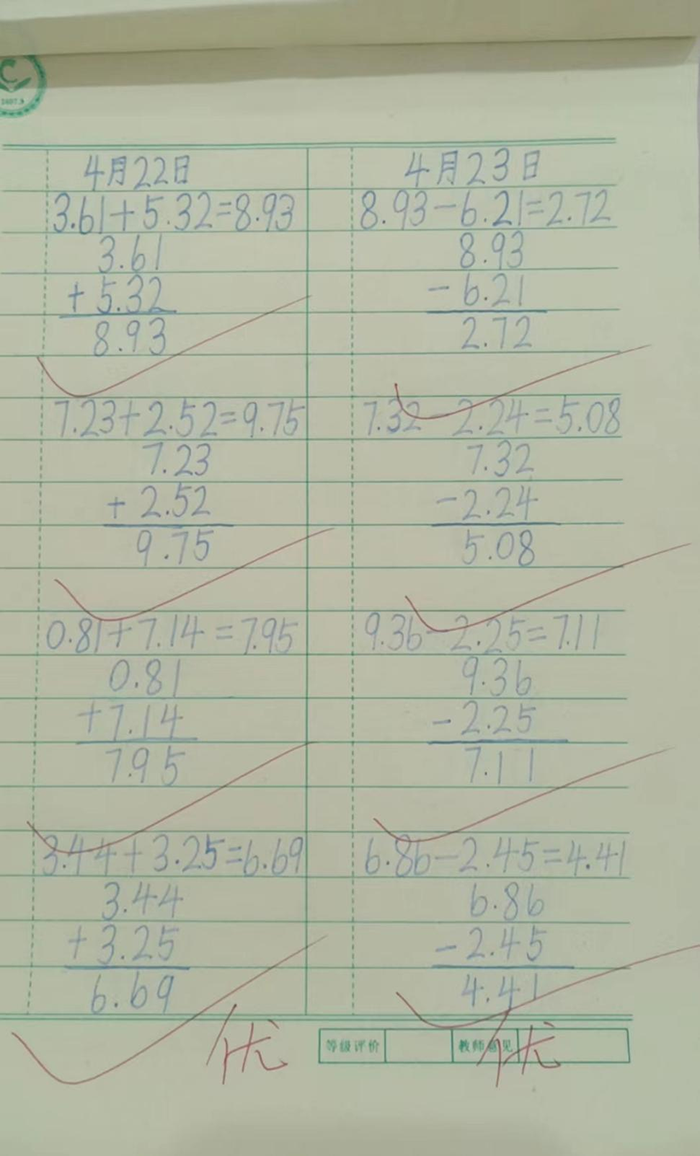 4月22日
3.61+5.32=8.93
3.61
+5.32
8.93
7.23+2.52=9.75
7.23
+2.52
9.75
0.81+7.14=7.95
0.81
+7.14
7.95
3.44+3.25=6.69
3.44
+3.25
6.69
优
4月23日
8.93-6.21=2.72
8.93
-6.21
2.72
7.32-2.24=5.08
7.32
-2.24
5.08
9.36-2.25=7.11
9.36
-2.25
7.11
6.86-2.45=4.41
6.86
-2.45
4.41
优
等级评价 教师意见